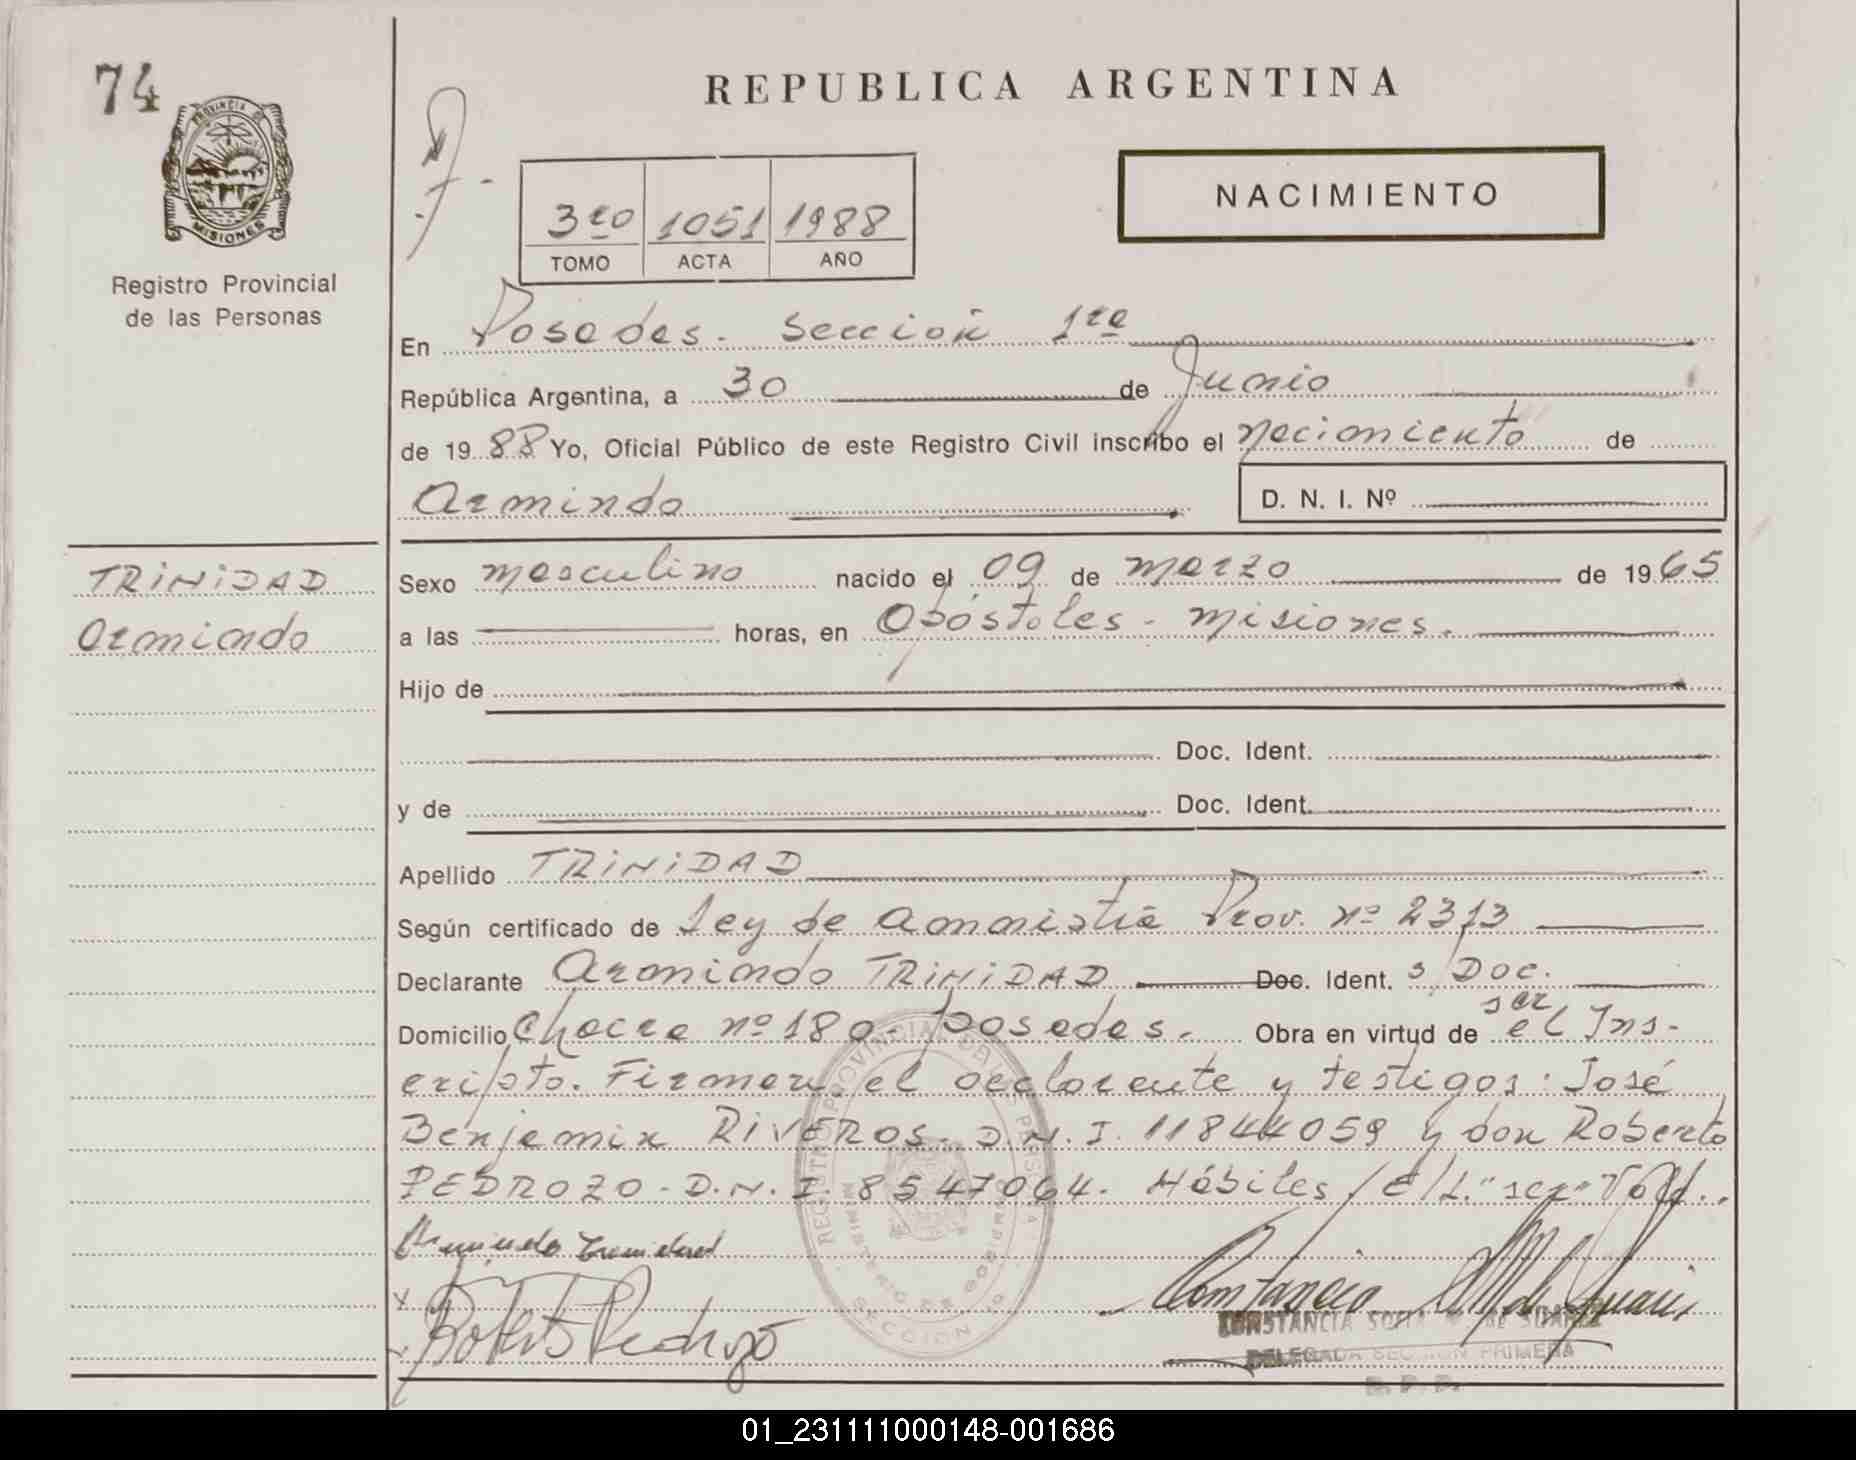 74
REPUBLICA ARGENTINA
PROVINCIA DE
MISIONES
Registro Provincial
de las Personas
NACIMIENTO
3ro 1051 1988
TOMO ACTA AÑO
En Posadas. Sección 1ra
República Argentina, a 30 de Junio
de 1988 Yo, Oficial Público de este Registro Civil inscribo el nacimiento de
Armindo D. N. I. Nº
TRINIDAD
Armindo
Sexo masculino nacido el 09 de marzo de 1965
a las horas, en Apóstoles - Misiones.
Hijo de
Doc. Ident.
y de Doc. Ident.
Apellido TRINIDAD
Según certificado de Ley de Amnistía Prov. nº 2313
Declarante Armindo TRINIDAD Doc. Ident. s/Doc.
Domicilio Chacra nº 180- posadas. Obra en virtud de ser el Ins-
cripto. Firman el declarante y testigos: José
Benjamin RIVEROS. D.N.I. 11844059 y don Roberto
PEDROZO - D.N.I. 8547064. Hábiles / E/L. "ser" Vale.
Armindo Trinidad
Roberto Pedrozo
REGISTRO PROVINCIAL DE LAS PERSONAS
MINISTERIO DE GOBIERNO
SECCION
CONSTANCIA SOFIA M. de SUAREZ
DELEGADA SECCION PRIMERA
R. P. P.
01_231111000148-001686